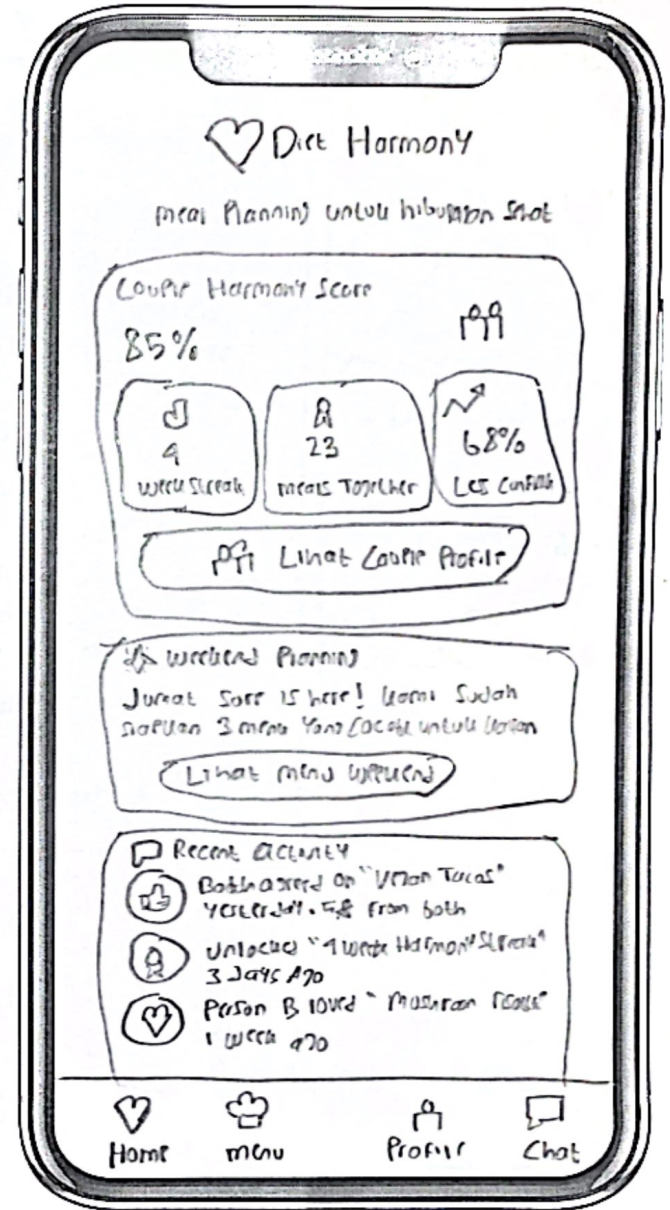 Diet Harmony
Meal Planning untuk hubungan sehat
Couple Harmony Score
85%
4
Week Streak
23
Meals Together
68%
Les Conflik
Lihat Couple Profile
Weekend Planning
Jumat Sore is here! Kami Sudah
siapkan 3 menu Yang Cocok untuk kalian
Lihat menu weekend
Recent activity
Both agreed on "Vegan Tacos"
Yesterday. from both
Unlocked "4 Week Harmony Streak"
3 Days Ago
Person B loved "Mushroom
1 Week ago
Home
menu
Profile
Chat